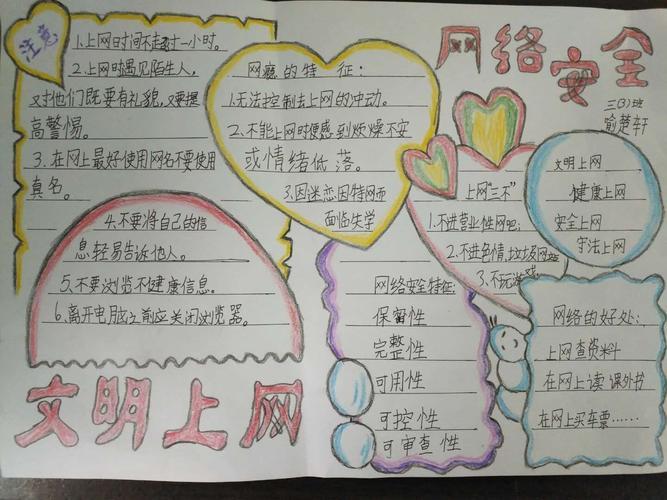 注意
1.上网时间不超过一小时。
2.上网时遇见陌生人,
对他们既要有礼貌,又要提
高警惕。
3.在网上最好使用网名不要使用
真名。
4.不要将自己的信
息轻易告诉他人。
5.不要浏览不健康信息。
6.离开电脑之前应关闭浏览器。
文明上网
网瘾的特征:
1.无法控制去上网的冲动。
2、不能上网时便感到烦燥不安
或情绪低落。
3.因迷恋因特网而
面临失学
网络安全
三(3)班
喻楚轩
上网"三不"
1.不进营业性网吧;
2.不进色情,垃圾网站
3.不玩游戏
文明上网
健康上网
安全上网
守法上网
网络安全特征:
保留性
完整性
可用性
可控性
可审查性
网络的好处:
上网查资料
在网上读课外书
在网上买车票……